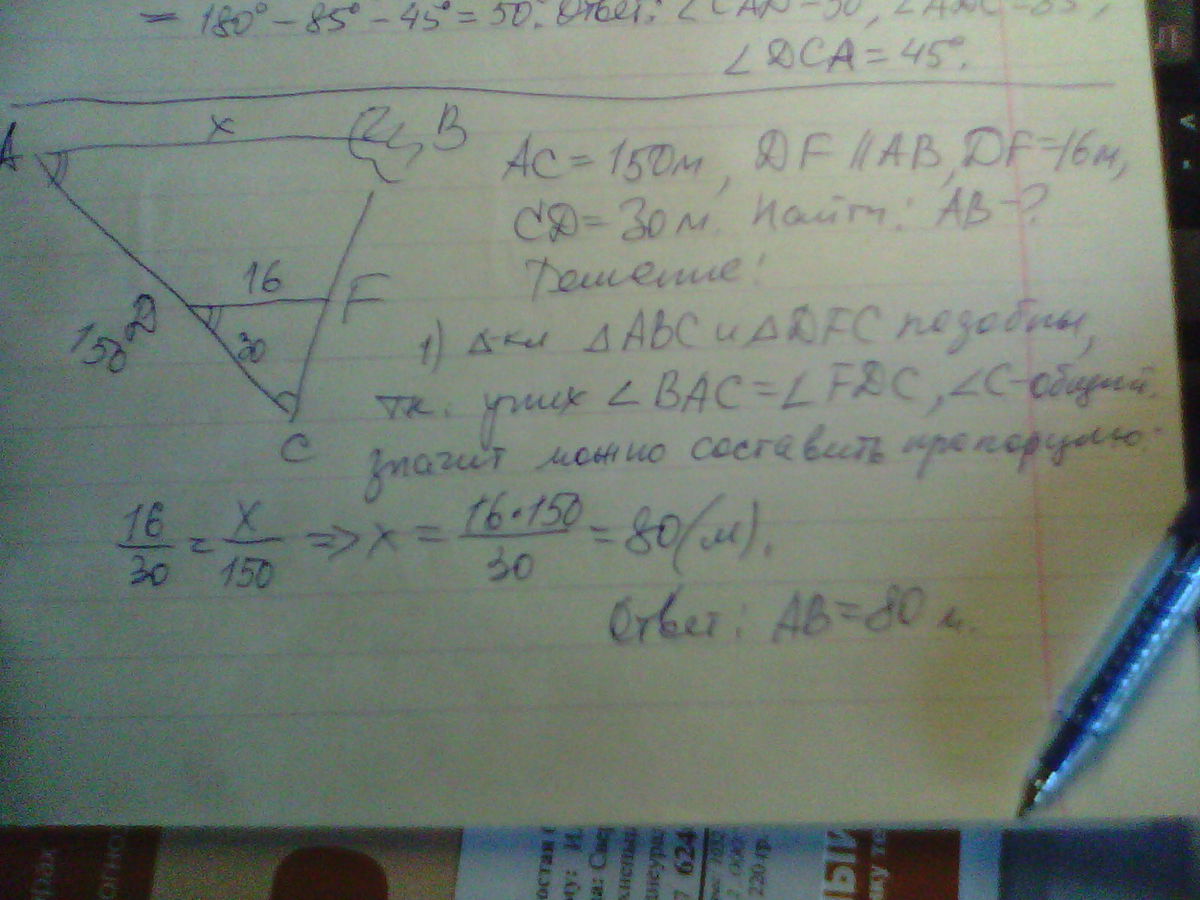 = 180° - 85° - 45° = 50°. Ответ: ∠CAD = 50°, ∠ADC = 85°,
∠DCA = 45°.
A x B
AC = 150 м, DF || AB, DF = 16 м,
CD = 30 м. Найти: AB - ?
Решение:
16
D F
150 30
C
1) Δ-ки ΔABC и ΔDFC подобны,
тк. у них ∠BAC = ∠FDC, ∠C - общий.
значит можно составить пропорцию:
16/30 = x/150 => x = 16·150/30 = 80 (м).
Ответ: AB = 80 м.
7 624
220 гр.